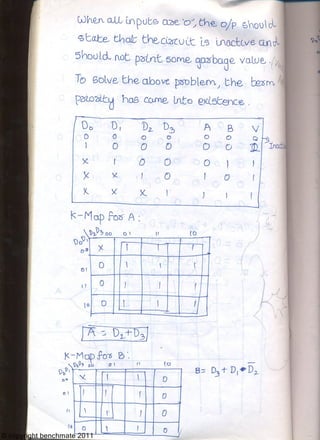 When all inputs are '0', the o/p should
state that the circuit is inactive and
should not print some garbage value.
To solve the above problem, the term
parozity has come into existence.
D0 D1 D2 D3 A B V
0 0 0 0 0 0 0
1 0 0 0 0 0 1
X 1 0 0 0 1 1
X X 1 0 1 0 1
X X X 1 1 1 1
K-Map for A :
D0D1 D2D3 00 01 11 10
00 X 1 1 1
01 0 1 1 1
11 0 1 1 1
10 0 1 1 1
A = D2+D3
K-Map for B :
D0D1 D2D3 00 01 11 10
B = D3 + D1 • D̅2
00 X 1 1 0
01 1 1 1 0
11 1 1 1 0
10 0 1 1 0
© copyright benchmate 2011